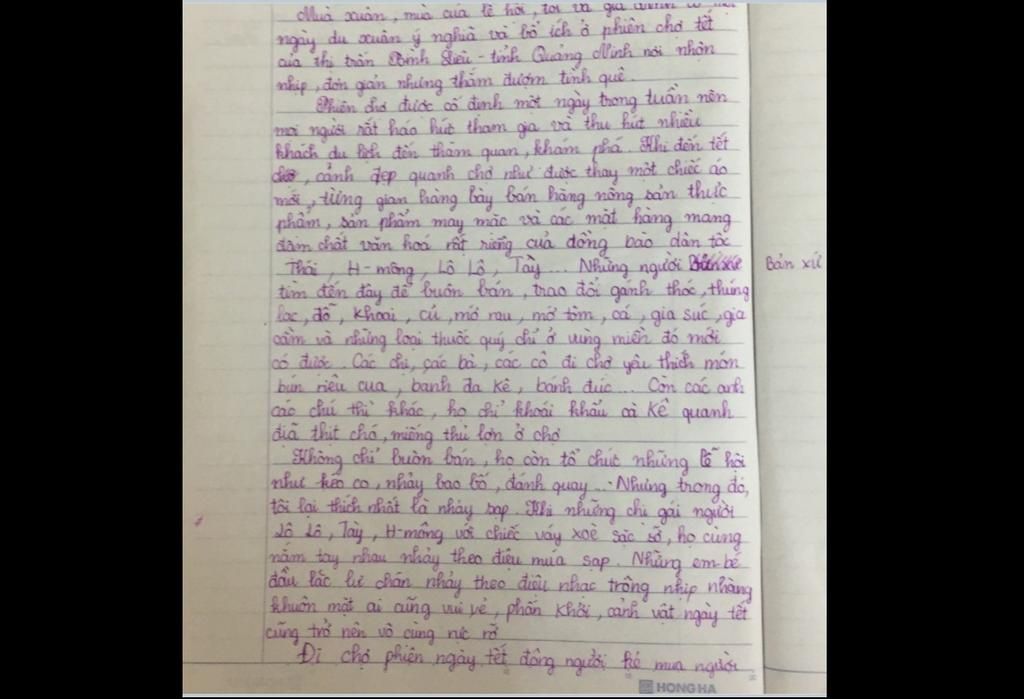 Mùa xuân, mùa của lễ hội, tôi và gia đình có một
ngày du xuân ý nghĩa và bổ ích ở phiên chợ tết
của thị trấn Bình Liêu - tỉnh Quảng Ninh nơi nhộn
nhịp, đơn giản nhưng thắm đượm tình quê.
Phiên chợ được cố định một ngày trong tuần nên
mọi người rất háo hức tham gia và thu hút nhiều
khách du lịch đến thăm quan, khám phá. Khi đến tết
, cảnh đẹp quanh chợ như được thay một chiếc áo
mới, từng gian hàng bày bán hàng nông sản thực
phẩm, sản phẩm may mặc và các mặt hàng mang
đậm chất văn hoá rất riêng của đồng bào dân tộc
Thái, H-mông, Lô Lô, Tày... Những người Bản xứ
tìm đến đây để buôn bán, trao đổi gánh thóc, thúng
lạc, đỗ, khoai, củ, mớ rau, mớ tôm, cá, gia súc, gia
cầm và những loại thuốc quý chỉ ở vùng miền đó mới
có được. Các chị, các bà, các cô đi chợ yêu thích món
bún riêu cua, banh đa kê, bánh đúc... Còn các anh
các chú thì khác, họ chỉ khoái khẩu cà kê quanh
đĩa thịt chó, miếng thủ lợn ở chợ
Không chỉ buôn bán, họ còn tổ chức những lễ hội
như kéo co, nhảy bao bố, đánh quay... Nhưng trong đó,
tôi lại thích nhất là nhảy sạp. Khi những chị gái người
Lô Lô, Tày, H-mông với chiếc váy xoè sặc sỡ, họ cùng
nắm tay nhau nhảy theo điệu múa sạp. Những em bé
đầu lắc lư chân nhảy theo điệu nhạc trống nhịp nhàng
khuôn mặt ai cũng vui vẻ, phấn khởi, cảnh vật ngày tết
cũng trở nên vô cùng rực rỡ
Đi chợ phiên ngày tết đông người kẻ mua người
HONG HA